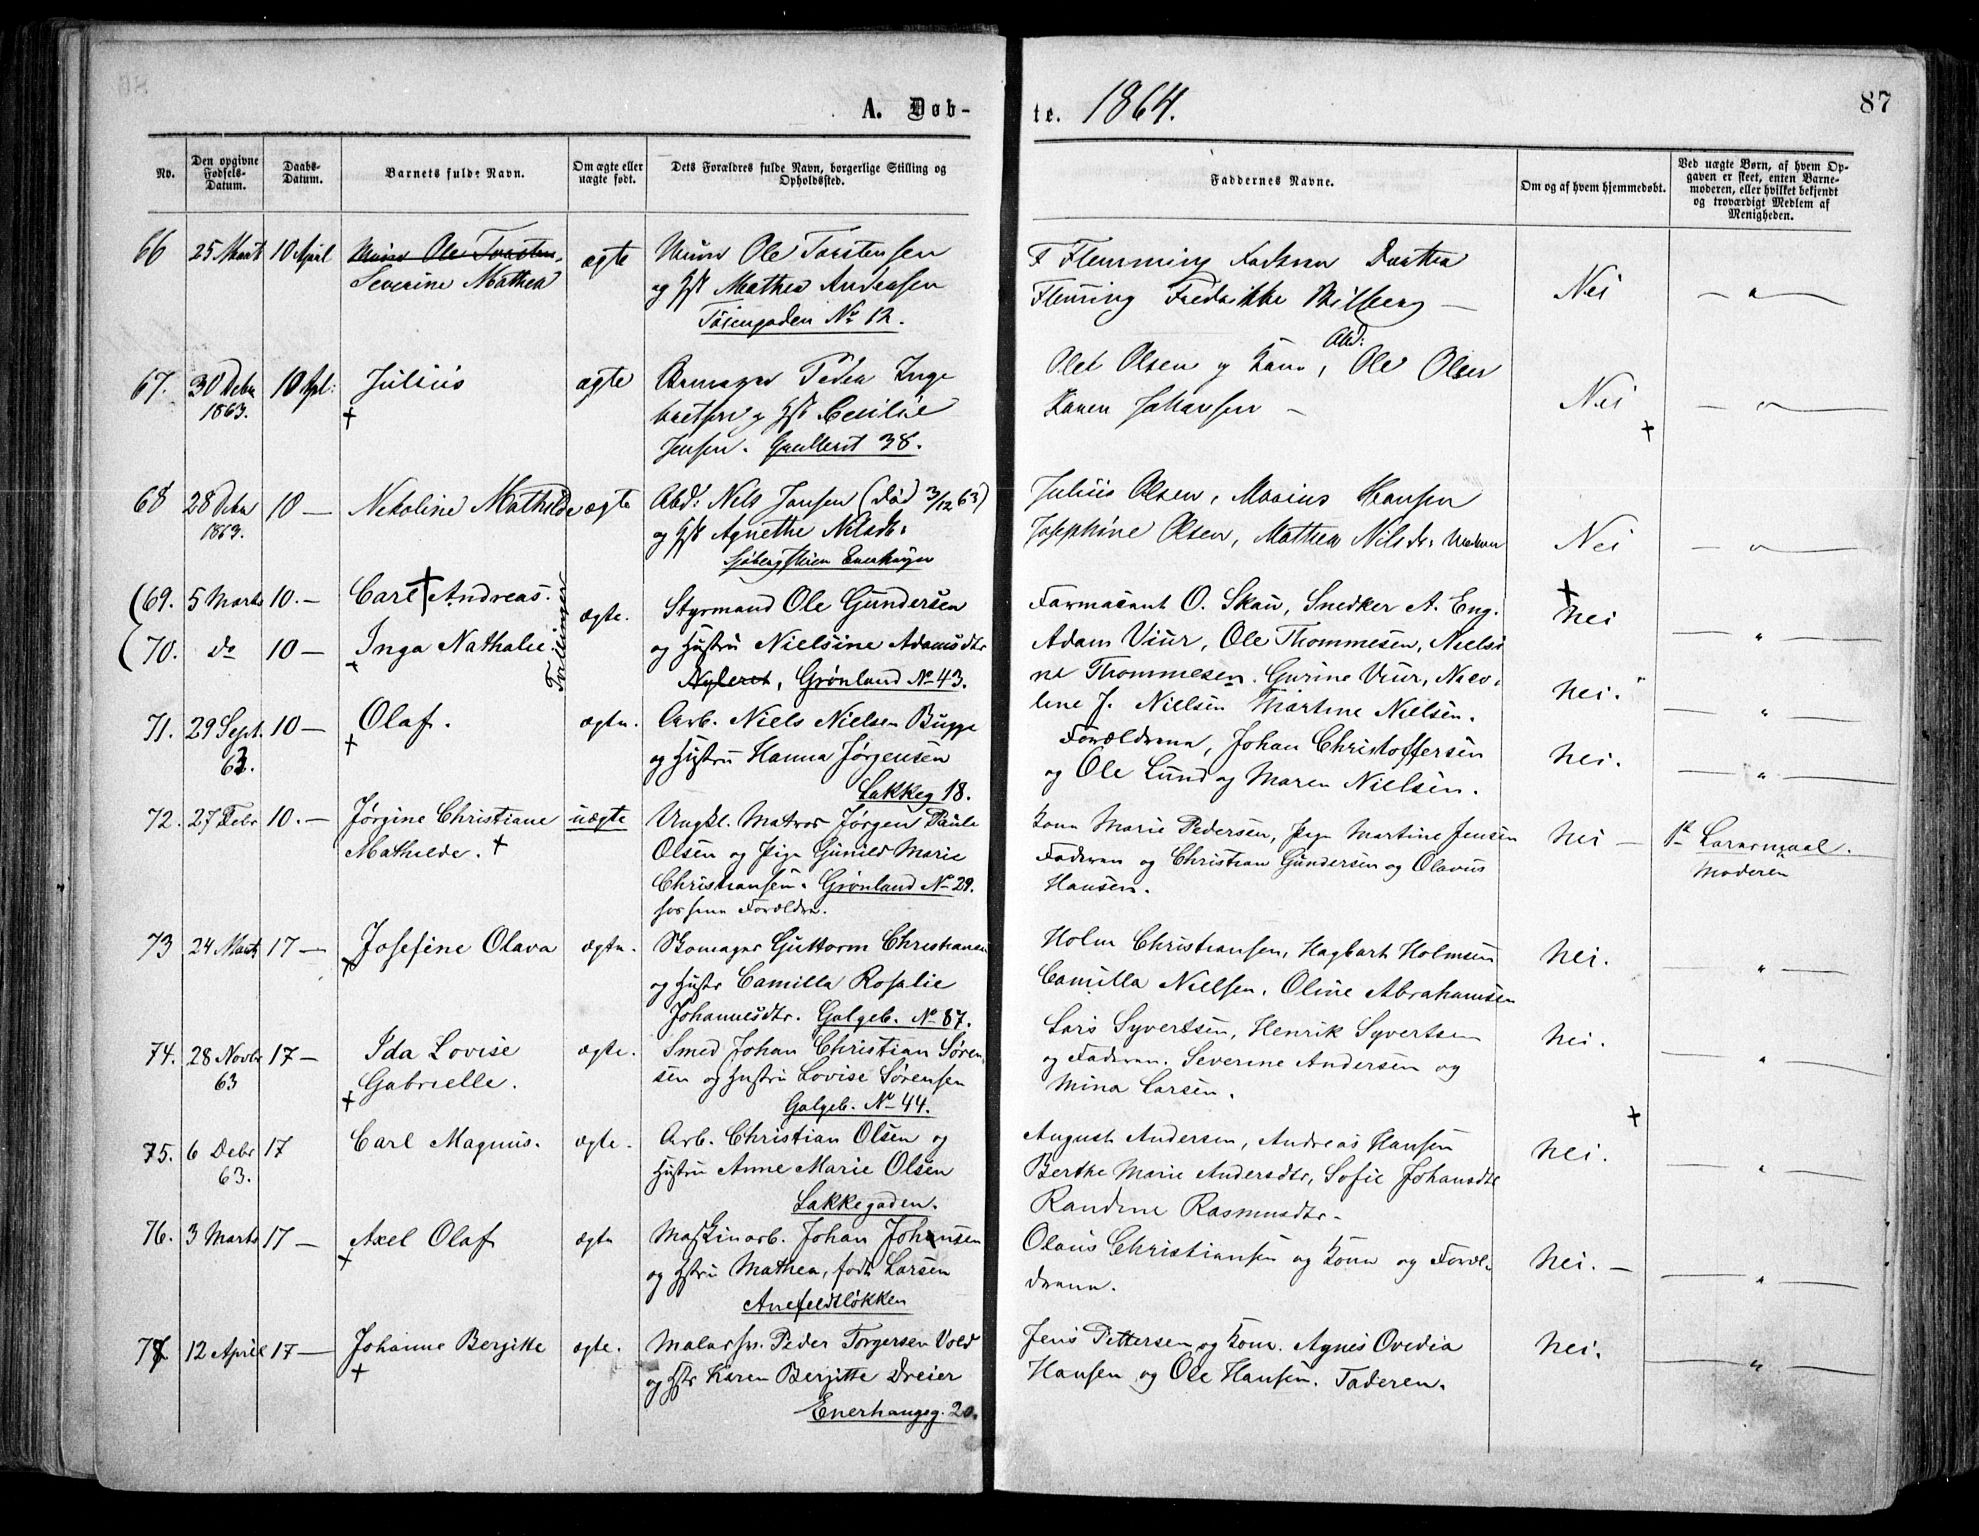 A. Døb-
te. 1864.
87
No.
Den opgivne Fødsels-Datum.
Daabs-Datum.
Barnets fulde Navn.
Om ægte eller uægte født.
Dets Forældres fulde Navn, borgerlige Stilling og Opholdssted.
Faddernes Navne.
Om og af hvem hjemmedøbt.
Ved uægte Børn, af hvem Opgaven er skeet, enten Barnemoderen, eller hvilket bekjendt og troværdigt Medlem af Menigheden.
66 25 Marts 10 April
Severine Mathea
ægte
Ole Torstensen
og Hst Mathea Andersen
Tøiengaden No 12.
F Flemming Dorthea
Fleming Fredrikke
Nei
67. 30 Debr 1863. 10 Apl:
Julius
ægte
Peder Inge
bretsen og Hst Cecilie
Jensen. 38.
Olet Olsen og Kone, Abd: Ole Olsen
Karen Johansen —
Nei
68 28 Debr 1863. 10 —
Netoline Mathilde
ægte
Abd: Nils Jansen (død 3/12 63)
og Hst Agnethe Nilsdr:
Julius Olsen, Marius Hansen
Josephine Olsen, Mathea Nilsdr:
Nei
(69. 5 Marts 10. —
Carl Andreas.
ægte.
Tvillinger
Styrmand Ole Gundersen
Farmaceut O. Skau, Snedker A. Eng.
Nei
(70. do 10 —
Inga Nathalie
og Hustru Nielsine Adamsdtr
Nyleret, Grønland No 43.
Adam Viur, Ole Thommesen, Nielsi
ne Thommesen. Gurine Viur, Nico-
line J. Nielsen Martine Nielsen.
Nei.
71. 29 Sept. 63. 10 —
Olaf.
ægte.
Arb. Niels Nielsen Bugge
og Hustru Hanna Jørgensen
Lakkeg 18.
Forældrene, Johan Christoffersen
og Ole Lund og Maren Nielsen.
Nei.
72. 27 Febr 10. —
Jørgine Christiane
Mathilde.
uægte
Ungkl. Matros Jørgen Paule
Olsen og Pige Gunild Marie
Christiansen. Grønland No 29.
hos sine Forældre.
Kone Marie Pedersen, Pige Martine Jensen
Faderen og Christian Gundersen og Olavus
Hansen.
Nei —
Moderen
73 24 Marts 17 —
Josefine Olava
ægte.
Skomager Guttorm Christiansen
og Hustr Camilla Rosalie
Johannesdtr. Galgeb. No 87.
Holm Christiansen, Hagbart Holmsen
Camilla Nielsen, Oline Abrahamsen
Nei.
74. 28 Novbr 63 17 —
Ida Lovise
Gabrielle.
ægte.
Smed Johan Christian Søren-
sen og Hustru Lovise Sørensen
Galgeb. No 44.
Lars Syvertsen, Henrik Syvertsen
og Faderen. Severine Andersen og
Mina Larsen.
Nei.
75. 6 Debr 63. 17
Carl Magnus.
ægte.
Arb. Christian Olsen og
Hustru Anne Marie Olsen
Lakkegaden.
August Andersen, Andreas Hansen
Berthe Marie Andersdtr, Sofie Johansdtr
Randine Rasmusdtr.
Nei.
76. 3 Marts 17 —
Axel Olaf
ægte
Maskinarb. Johan Johansen
og Hstru Mathea, født Larsen
Anefeldtløkken
Olaus Christiansen og Kone og Foræl-
drene.
Nei. —
77 12 April 17 —
Johanne Berjitte
ægte.
Malersv. Peder Torgersen Vold
og Hstr Karen Berjitte Dreier
Enerhaugsg. 20.
Jens Pettersen og Kone. Agnes Ovedia
Hansen og Ole Hansen. Faderen.
Nei.